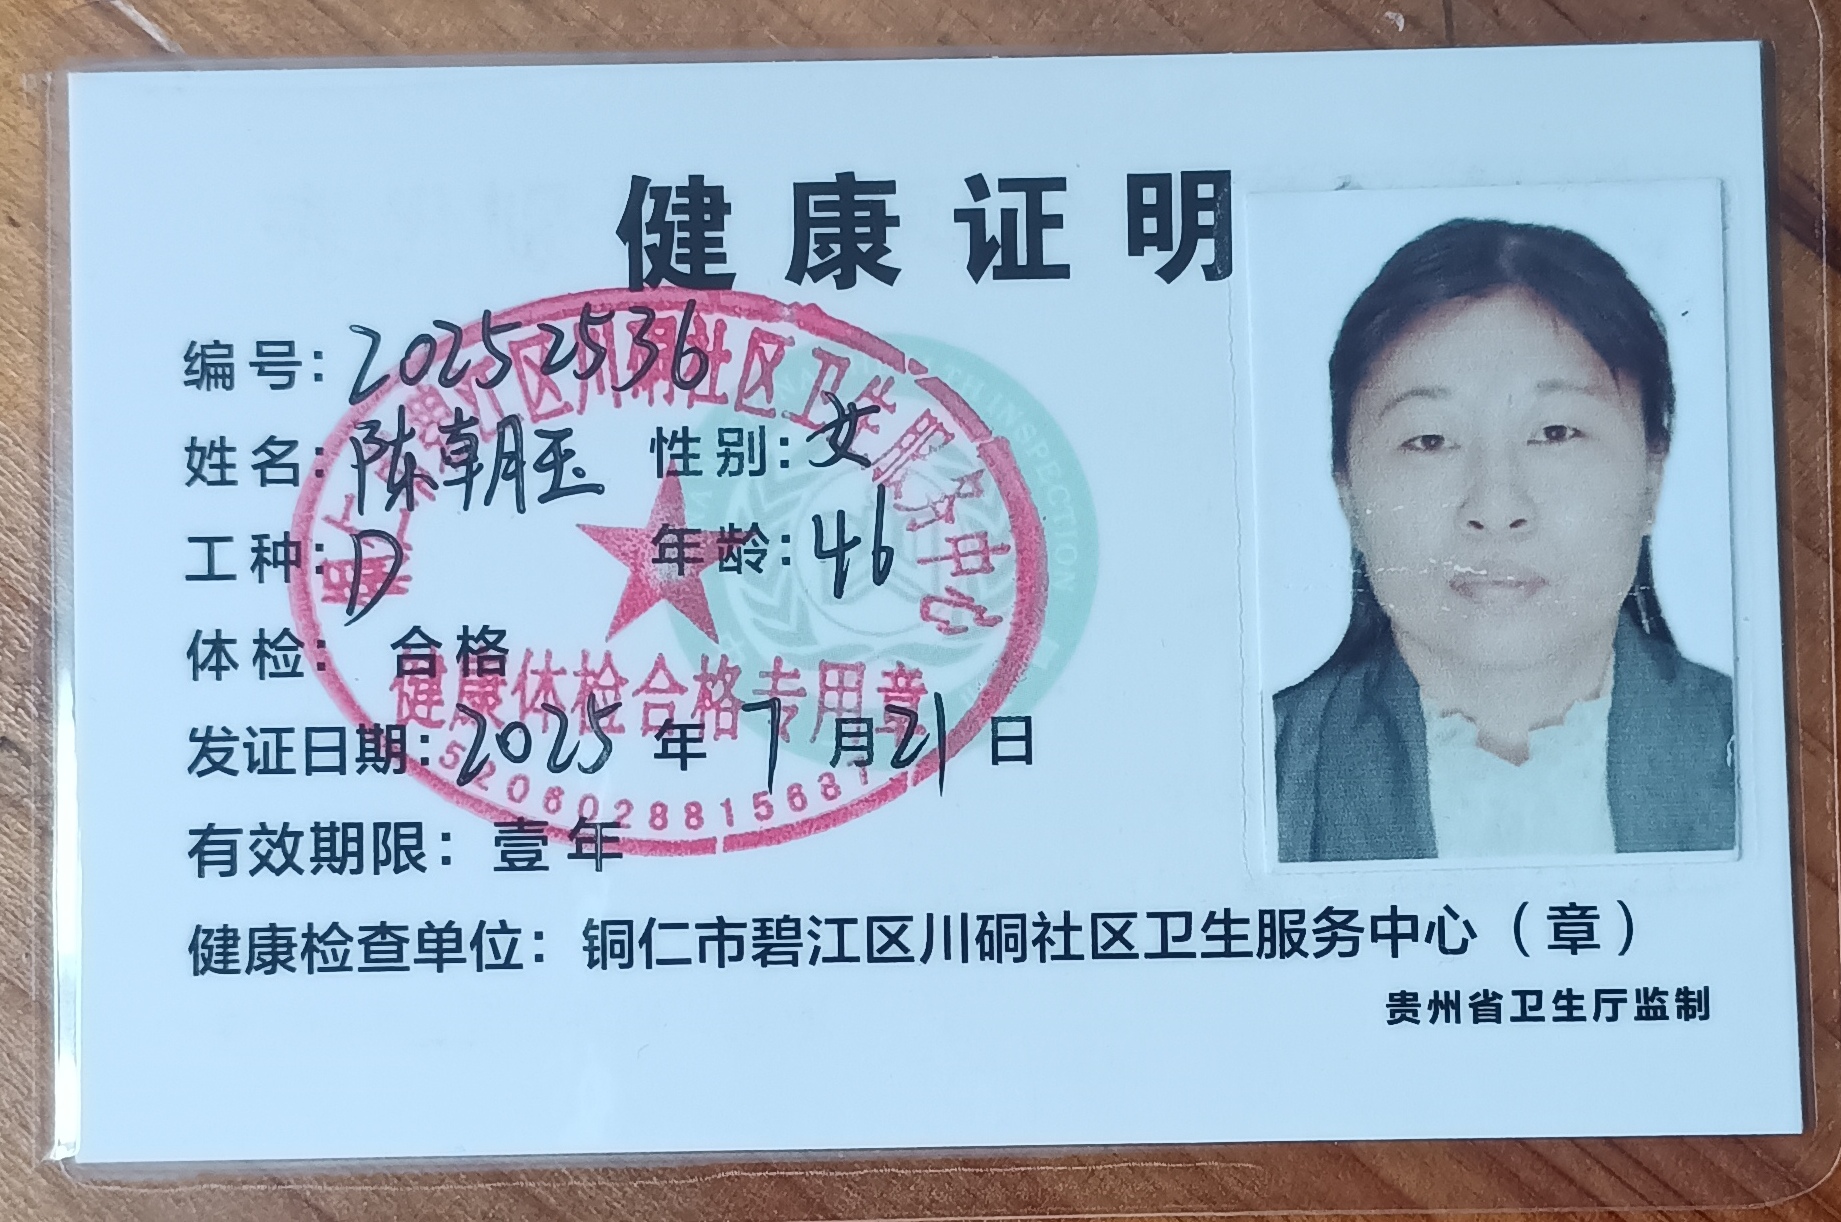 健康证明
编号：20252536
姓名：陈朝玉 性别：女
工种：D 年龄：46
体检： 合格
发证日期：2025 年 7 月 21 日
有效期限：壹年
健康检查单位：铜仁市碧江区川硐社区卫生服务中心（章）
贵州省卫生厅监制
铜仁市碧江区川硐社区卫生服务中心
健康体检合格专用章
INSPECTION